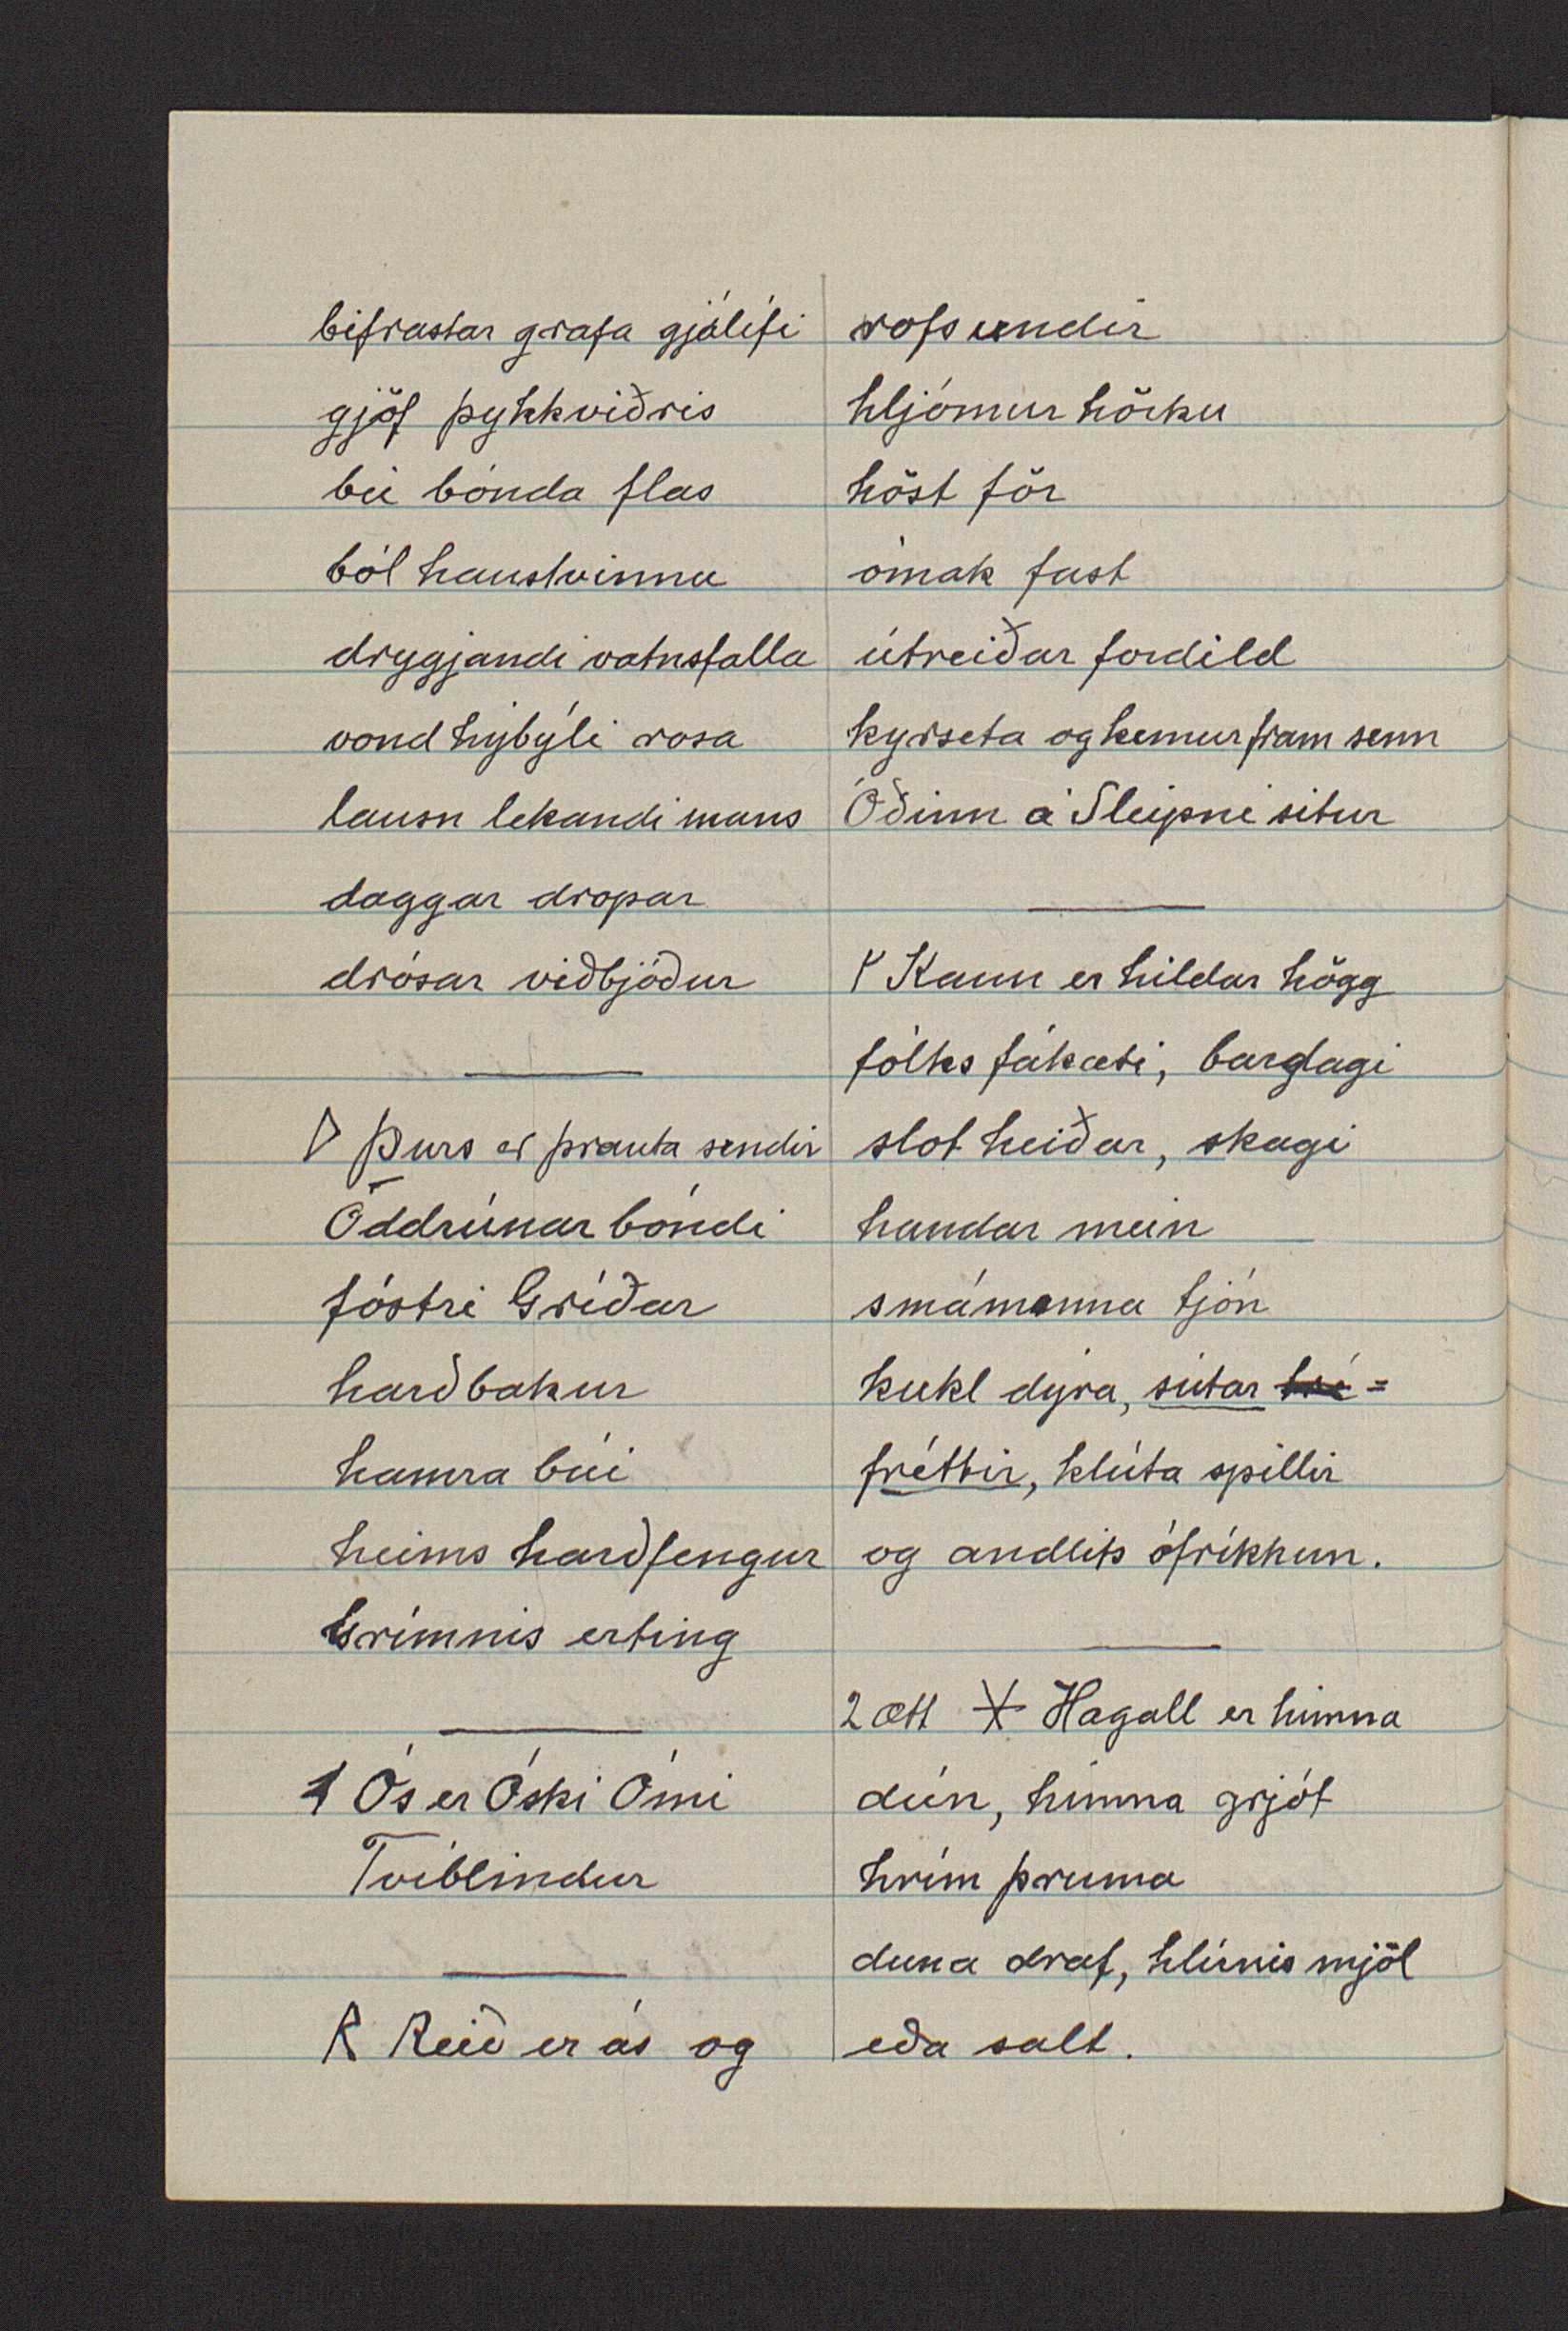 bifrastar grafa gjálífi
gjöf þykkviðris
bú bónda flas
ból haustvinnu
drygjandi vatnsfalla
vond hýbýli rosa
lausn lekandi mans
daggar dropar
drósar viðbjóður
ᚦ Þurs er þrauta sendir
Oddrúnar bóndi
fóstri Gríðar
harðbakur
hamra búi
heims harðfengur
Grímnis erting
ᚬ Ós er Óski Ómi
Tvíblindur
ᚱ Reið er ás og
rofs undir
hljómur hörku
höst för
ómak fast
útreiðar fordild
kyrseta og kemur fram senn
Óðinn á Sleipni situr
ᚴ Kaun er hildar högg
fólks fákæti, bardagi
slot heiðar, skagi
handar mein
smámenna tjón
kukl dýra, sútar =
fréttir, klúta spillir
og andlits ófríkkun.
2 ætt ᚼ Hagall er himna
dún, himna grjót
hrím þruma
duna draf, hlúnis mjöl
eða salt.